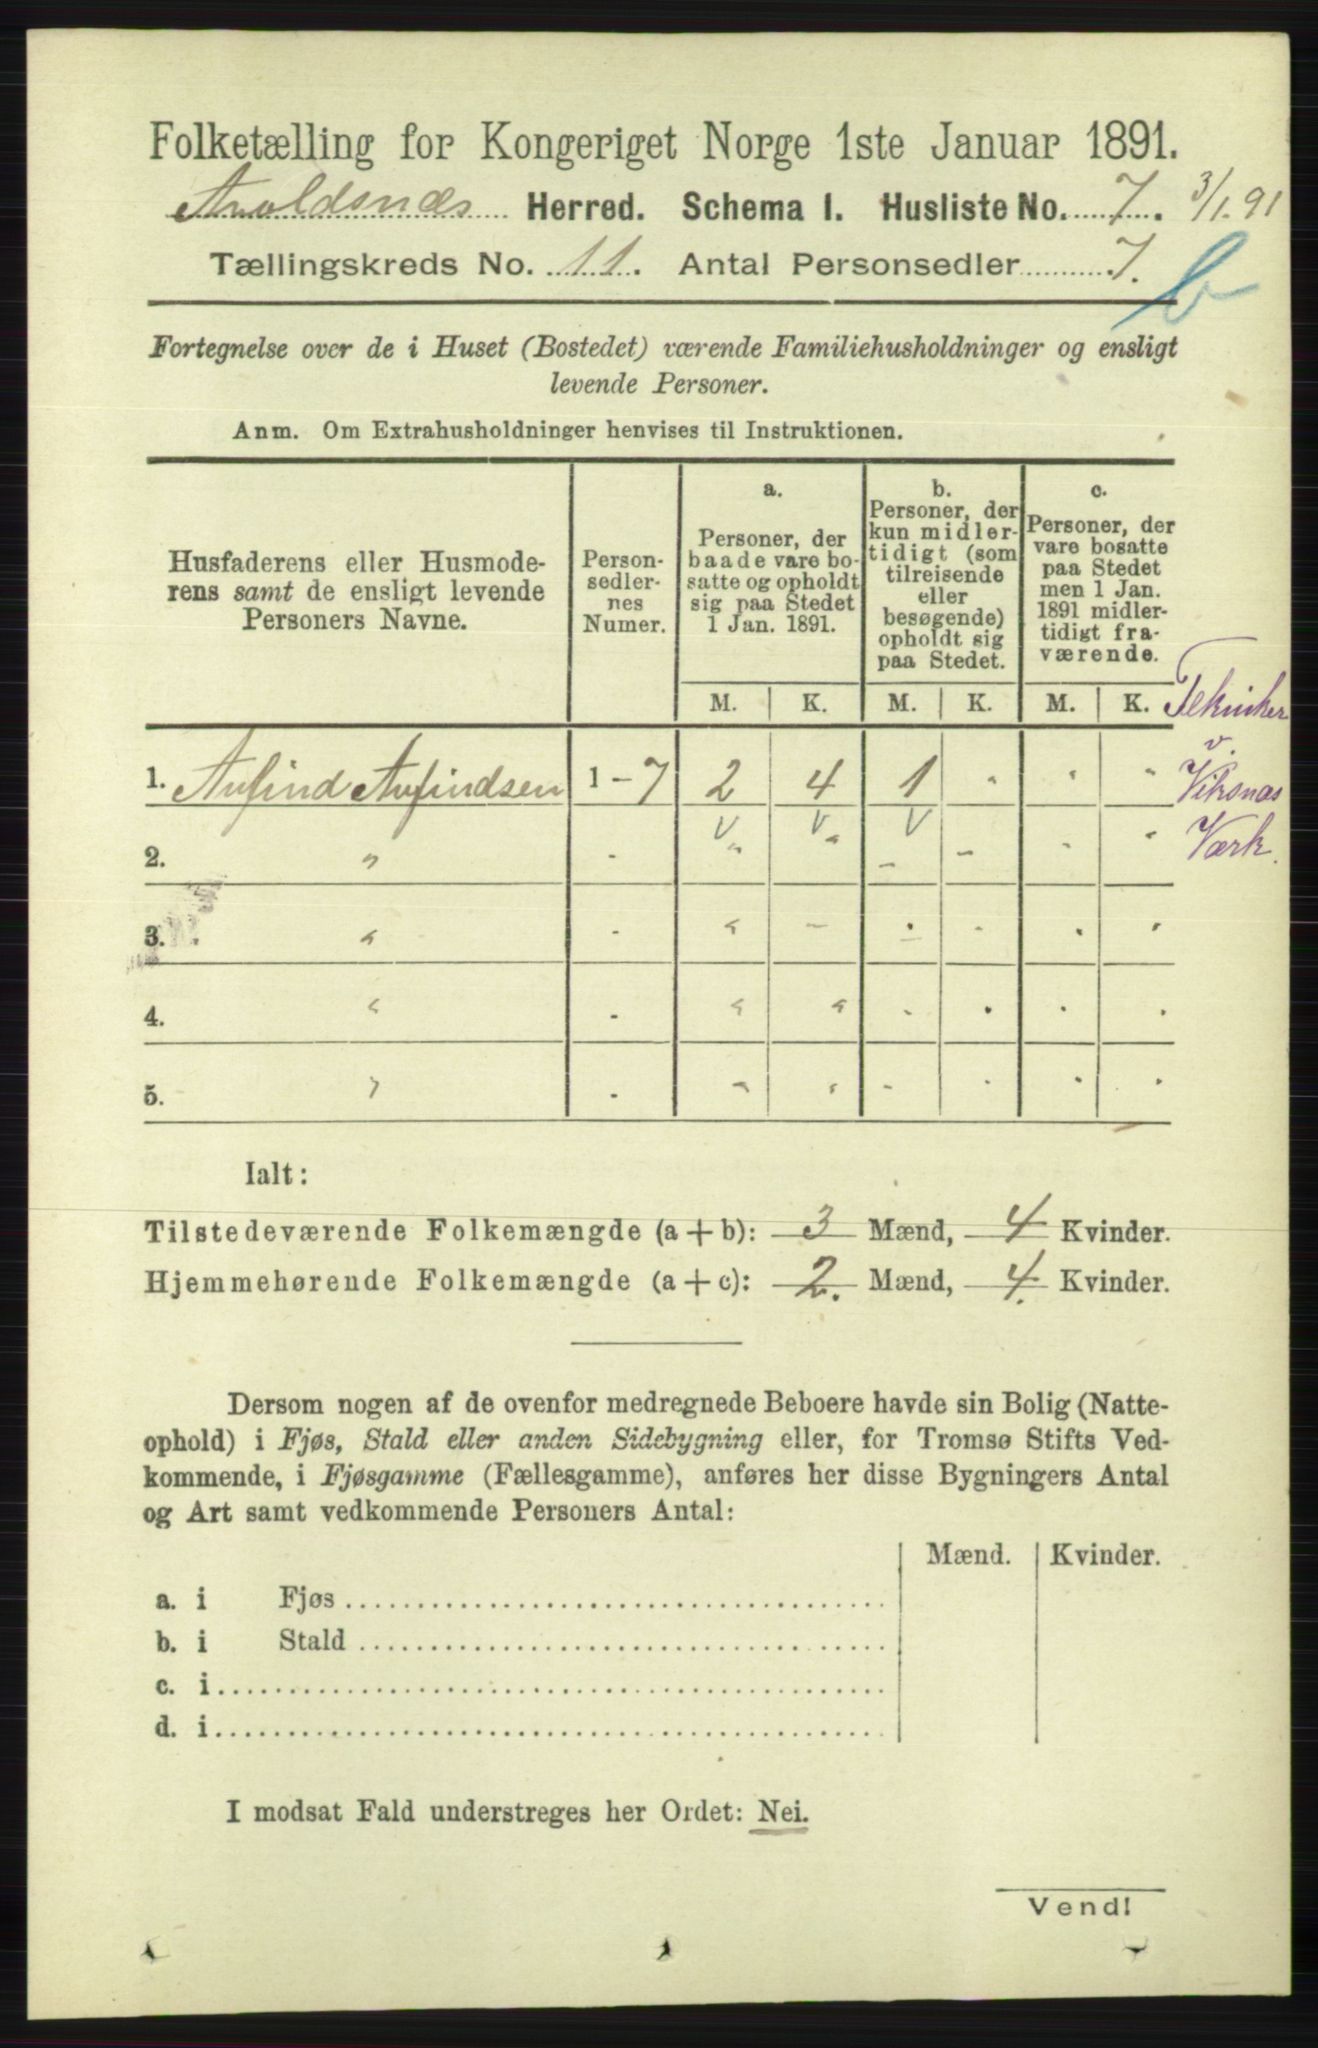 Folketælling for Kongeriget Norge 1ste Januar 1891.
Avaldsnæs Herred. Schema I. Husliste No. 7. 3/1.91
Tællingskreds No. 11. Antal Personsedler 7.
b
Fortegnelse over de i Huset (Bostedet) værende Familiehusholdninger og ensligt
levende Personer.
Anm. Om Extrahusholdninger henvises til Instruktionen.
Husfaderens eller Husmode-
rens samt de ensligt levende
Personers Navne.
Person-
sedler-
nes
Numer.
a.
Personer, der
baade vare bo-
satte og opholdt
sig paa Stedet
1 Jan. 1891.
b.
Personer, der
kun midler-
tidigt (som
tilreisende
eller
besøgende)
opholdt sig
paa Stedet.
c.
Personer, der
vare bosatte
paa Stedet
men 1 Jan.
1891 midler-
tidigt fra-
værende.
M. K. M. K. M. K.
Tekniker
v.
Viksnæs
Værk.
1. Arfind Arfindsen 1 - 7 2 4 1 " " "
V V V
2. " - " " - - - "
3. " - " - . - . "
4. " - " " - . . .
5. " - " " - . . "
Ialt:
Tilstedeværende Folkemængde (a + b): 3 Mænd, 4 Kvinder.
Hjemmehørende Folkemængde (a + c): 2. Mænd, 4. Kvinder.
Dersom nogen af de ovenfor medregnede Beboere havde sin Bolig (Natte-
ophold) i Fjøs, Stald eller anden Sidebygning eller, for Tromsø Stifts Ved-
kommende, i Fjøsgamme (Fællesgamme), anføres her disse Bygningers Antal
og Art samt vedkommende Personers Antal:
Mænd. Kvinder.
a. i Fjøs
b. i Stald
c. i
d. i
I modsat Fald understreges her Ordet: Nei.
Vend!